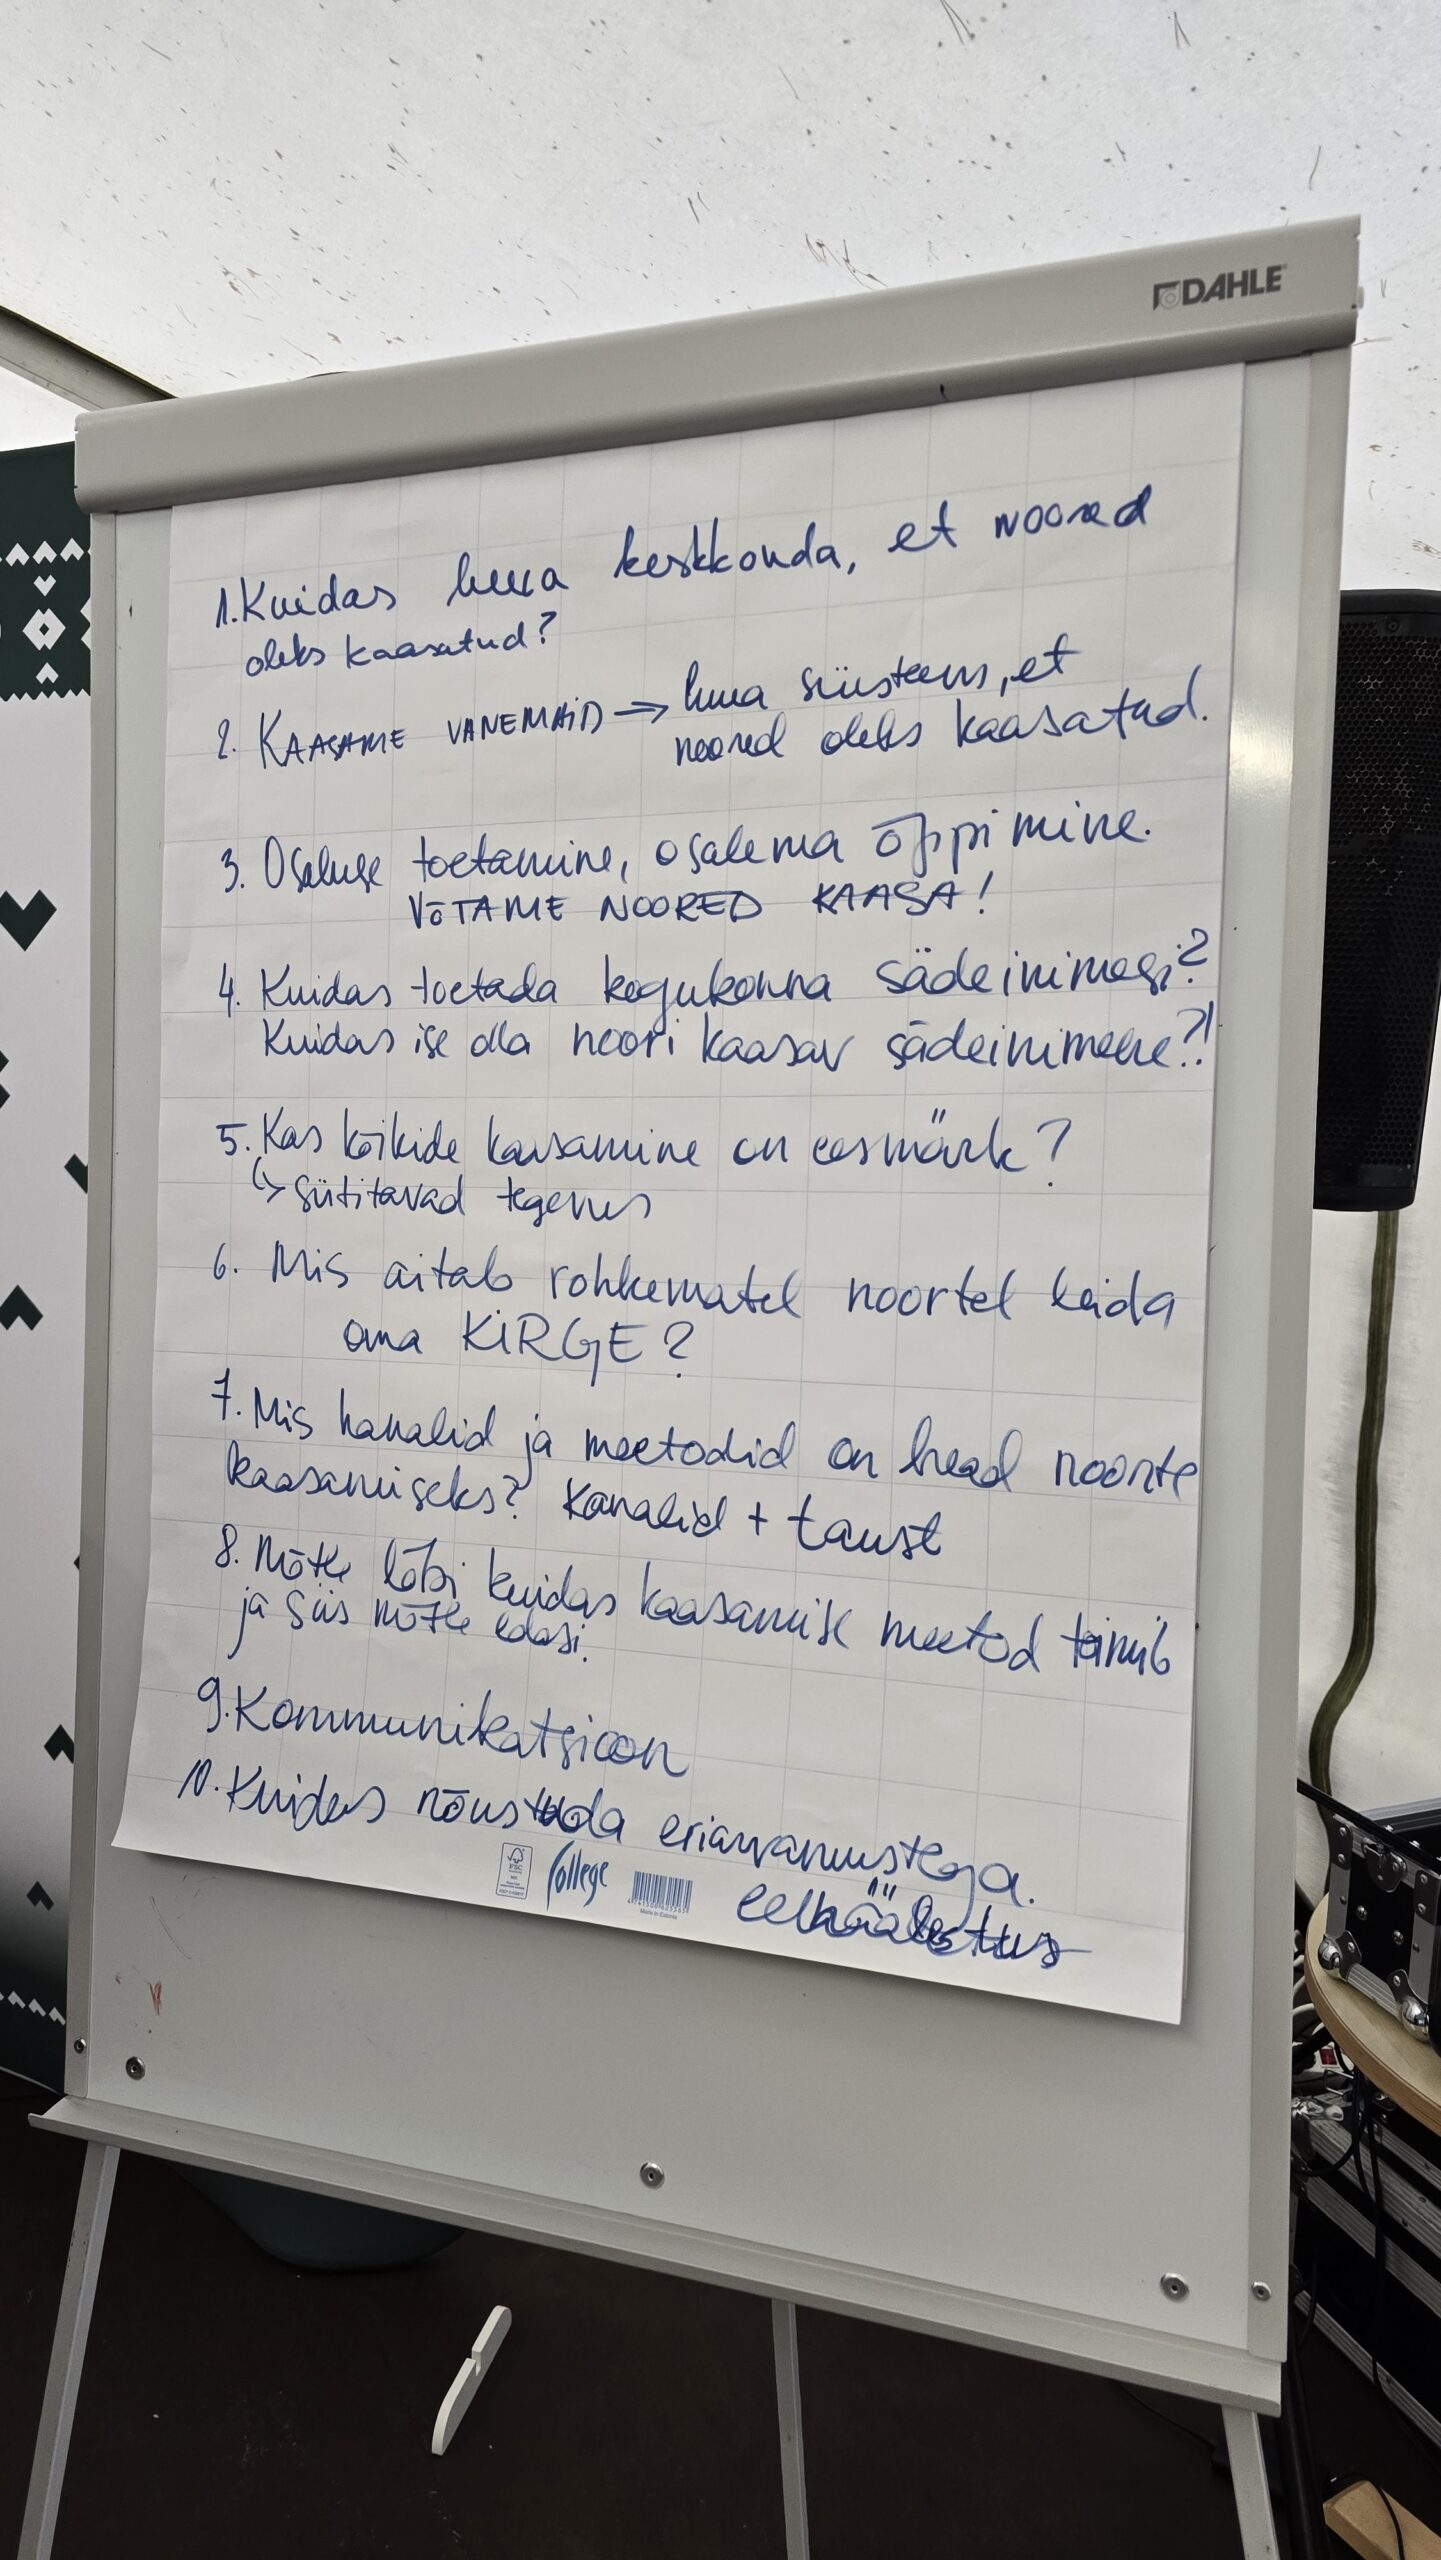 DAHLE
1. Kuidas luua keskkonda, et noored
oleks kaasatud?
2. KAASAME VANEMAID → luua süsteem, et
noored oleks kaasatud.
3. Osaluse toetamine, osalema õppimine.
VÕTAME NOORED KAASA!
4. Kuidas toetada kogukonna sädeinimesi?
Kuidas ise olla noori kaasav sädeinimene?!
5. Kas kõikide kaasamine on eesmärk?
↳ sütitavad tegevus
6. Mis aitab rohkematel noortel leida
oma KIRGE?
7. Mis kanalid ja meetodid on head noorte
kaasamiseks? Kanalid + taust
8. Mõtle läbi kuidas kaasamise meetod toimib
ja siis mõtle edasi.
9. Kommunikatsioon
10. Kuidas nõustuda eriarvamustega.
eelhäälestus
FSC
College
Made in Estonia